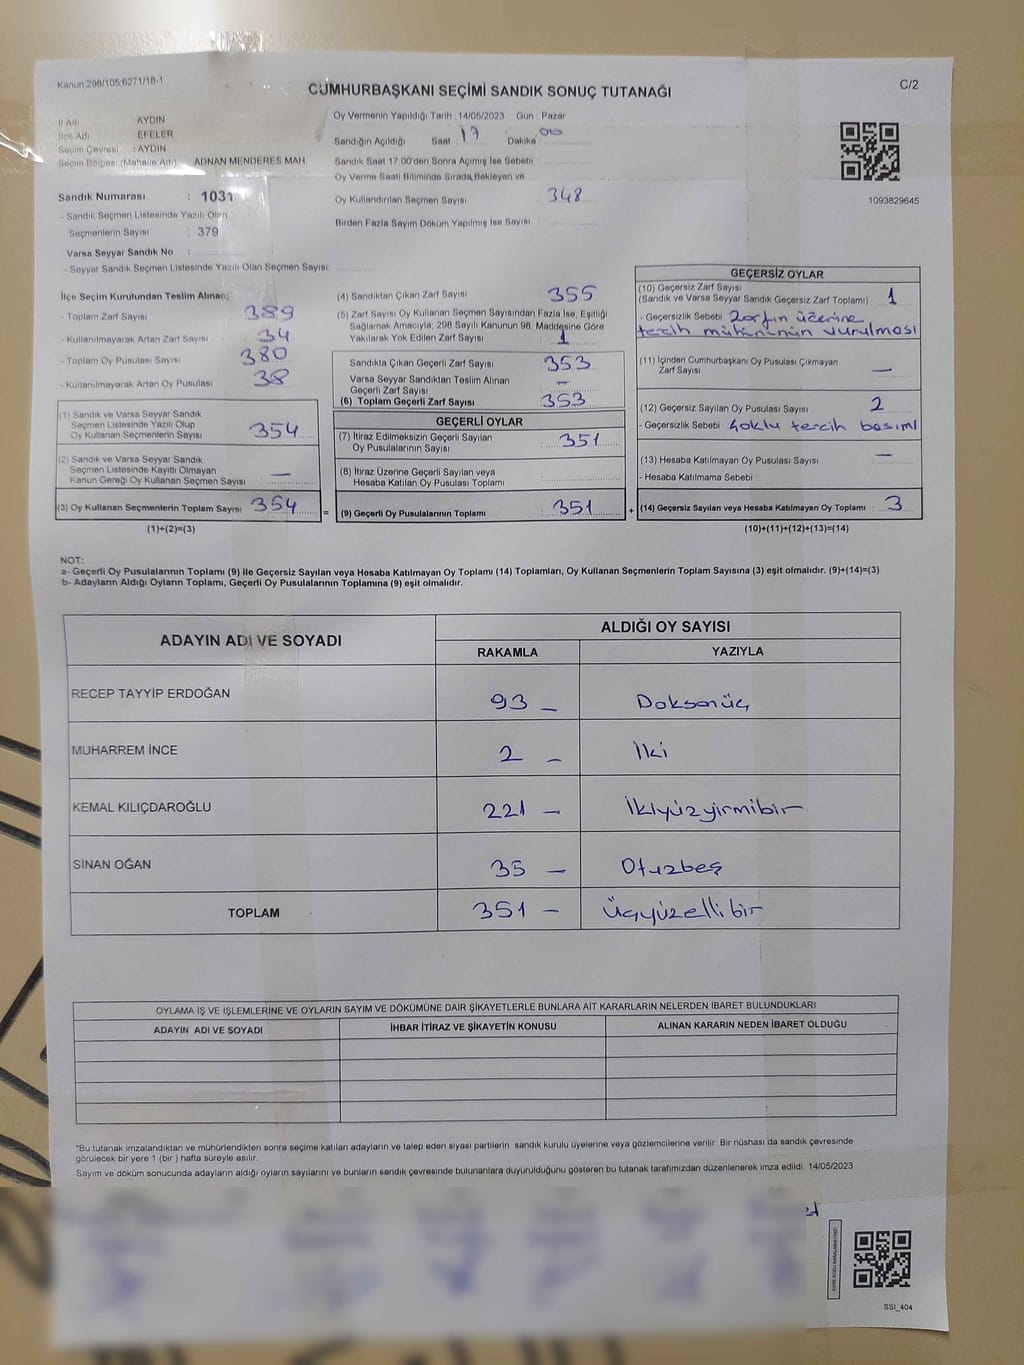 Kanun:298/105,6271/18-1
CUMHURBAŞKANI SEÇİMİ SANDIK SONUÇ TUTANAĞI
C/2
İl Adı AYDIN
İlçe Adı EFELER
Seçim Çevresi : AYDIN
Seçim Bölgesi (Mahalle Adı) ADNAN MENDERES MAH.
Sandık Numarası : 1031
- Sandık Seçmen Listesinde Yazılı Olan
Seçmenlerin Sayısı : 379
Varsa Seyyar Sandık No :
- Seyyar Sandık Seçmen Listesinde Yazılı Olan Seçmen Sayısı:
Oy Vermenin Yapıldığı Tarih : 14/05/2023 Gün : Pazar
Sandığın Açıldığı Saat 17 Dakika 00
Sandık Saat 17:00'den Sonra Açılmış İse Sebebi :
Oy Verme Saati Bitiminde Sırada Bekleyen ve
Oy Kullandırılan Seçmen Sayısı : 348
Birden Fazla Sayım Döküm Yapılmış İse Sayısı :
1093829645
İlçe Seçim Kurulundan Teslim Alınan;
- Toplam Zarf Sayısı : 389
- Kullanılmayarak Artan Zarf Sayısı : 34
- Toplam Oy Pusulası Sayısı : 380
- Kullanılmayarak Artan Oy Pusulası : 38
(1) Sandık ve Varsa Seyyar Sandık
Seçmen Listesinde Yazılı Olup
Oy Kullanan Seçmenlerin Sayısı : 354
(2) Sandık ve Varsa Seyyar Sandık
Seçmen Listesinde Kayıtlı Olmayan
Kanun Gereği Oy Kullanan Seçmen Sayısı : —
(3) Oy Kullanan Seçmenlerin Toplam Sayısı : 354
(1)+(2)=(3)
=
(4) Sandıktan Çıkan Zarf Sayısı : 355
(5) Zarf Sayısı Oy Kullanan Seçmen Sayısından Fazla İse, Eşitliği
Sağlamak Amacıyla; 298 Sayılı Kanunun 98. Maddesine Göre
Yakılarak Yok Edilen Zarf Sayısı : 1
Sandıkta Çıkan Geçerli Zarf Sayısı : 353
Varsa Seyyar Sandıktan Teslim Alınan
Geçerli Zarf Sayısı : —
(6) Toplam Geçerli Zarf Sayısı : 353
GEÇERLİ OYLAR
(7) İtiraz Edilmeksizin Geçerli Sayılan
Oy Pusulalarının Sayısı : 351
(8) İtiraz Üzerine Geçerli Sayılan veya
Hesaba Katılan Oy Pusulası Toplamı :
(9) Geçerli Oy Pusulalarının Toplamı : 351
+
GEÇERSİZ OYLAR
(10) Geçersiz Zarf Sayısı
(Sandık ve Varsa Seyyar Sandık Geçersiz Zarf Toplamı) : 1
- Geçersizlik Sebebi : Zarfın üzerine
tercih mührünün vurulması
(11) İçinden Cumhurbaşkanı Oy Pusulası Çıkmayan
Zarf Sayısı : —
(12) Geçersiz Sayılan Oy Pusulası Sayısı : 2
- Geçersizlik Sebebi : Çoklu tercih basımı
(13) Hesaba Katılmayan Oy Pusulası Sayısı : —
- Hesaba Katılmama Sebebi :
(14) Geçersiz Sayılan veya Hesaba Katılmayan Oy Toplamı : 3
(10)+(11)+(12)+(13)=(14)
NOT:
a- Geçerli Oy Pusulalarının Toplamı (9) ile Geçersiz Sayılan veya Hesaba Katılmayan Oy Toplamı (14) Toplamları, Oy Kullanan Seçmenlerin Toplam Sayısına (3) eşit olmalıdır. (9)+(14)=(3)
b- Adayların Aldığı Oyların Toplamı, Geçerli Oy Pusulalarının Toplamına (9) eşit olmalıdır.
ADAYIN ADI VE SOYADI
ALDIĞI OY SAYISI
RAKAMLA YAZIYLA
RECEP TAYYİP ERDOĞAN 93 — Doksanüç
MUHARREM İNCE 2 — İki
KEMAL KILIÇDAROĞLU 221 — İkiyüzyirmibir
SİNAN OĞAN 35 — Otuzbeş
TOPLAM 351 — Üçyüzellibir
OYLAMA İŞ VE İŞLEMLERİNE VE OYLARIN SAYIM VE DÖKÜMÜNE DAİR ŞİKAYETLERLE BUNLARA AİT KARARLARIN NELERDEN İBARET BULUNDUKLARI
ADAYIN ADI VE SOYADI İHBAR İTİRAZ VE ŞİKAYETİN KONUSU ALINAN KARARIN NEDEN İBARET OLDUĞU
*Bu tutanak imzalandıktan ve mühürlendikten sonra seçime katılan adayların ve talep eden siyasi partilerin sandık kurulu üyelerine veya gözlemcilerine verilir. Bir nüshası da sandık çevresinde
görülecek bir yere 1 (bir) hafta süreyle asılır.
Sayım ve döküm sonucunda adayların aldığı oyların sayılarını ve bunların sandık çevresinde bulunanlara duyurulduğunu gösteren bu tutanak tarafımızdan düzenlenerek imza edildi. 14/05/2023
SSI_404